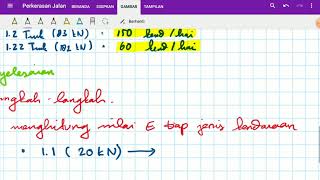 Perkerasan Jalan BERANDA SISIPKAN GAMBAR TAMPILAN
Berhenti
1.2 Truk (83 kN) • 150 kend/hari
1.22 Truk (182 kN) • 60 kend/hari
yelesaian
ngkah-langkah.
menghitung nilai E tiap jenis kendaraan
• 1.1 (20 kN) →